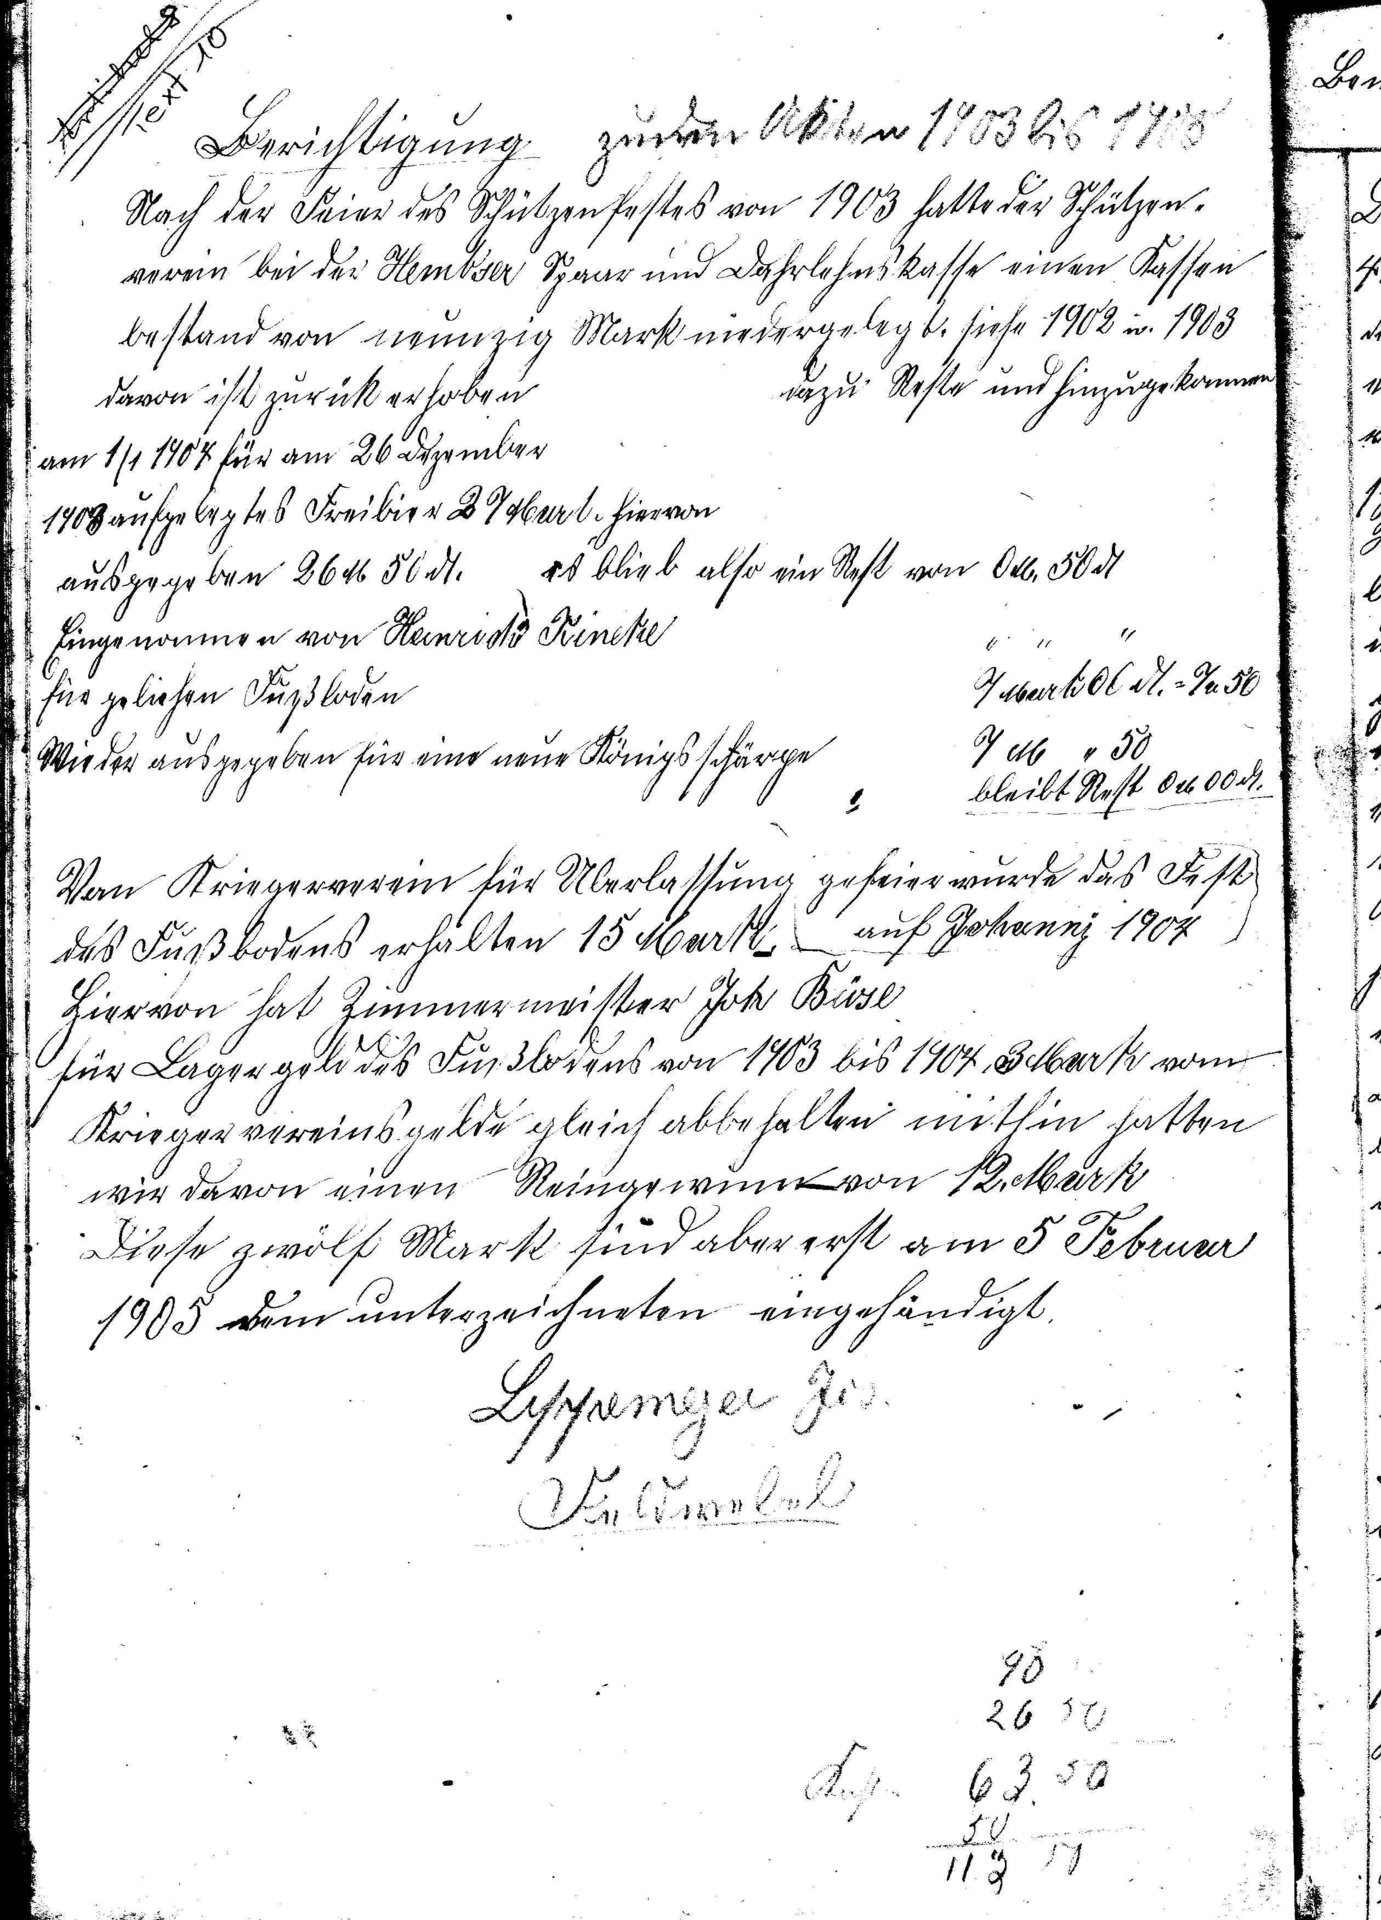 Text 10
Berichtigung zu den Akten 1903 bis 1908
Nach der Feier des Schützenfestes von 1903 hatte der Schützen-
verein bei der Hembser Spaar und Dahrlehnskasse einen Kassen
bestand von neunzig Mark niedergelegt. siehe 1902 u. 1903
davon ist zurük erhoben dazu Reste und hinzugekommen
am 1/1 1904 für am 26 Dezember
1903 aufgelegtes Freibier 27 Mark. hiervon
ausgegeben 26 M 50 d. es blieb also ein Rest von 0 M. 50 d
Eingenommen von Heinrich Kincke " " "
für geliehen Fußboden 7 Mark 00 d. = 7 M 50
Wieder ausgegeben für eine neue Königsschärpe 7 M " 50
bleibt Rest 0 M 00 d.
Von Kriegerverein für Uberlassung gefeier wurde das Fest
des Fußbodens erhalten 15 Mark. auf Johanni 1904
Hiervon hat Zimmermeister Joh Büse
für Lagergeld des Fußbodens von 1903 bis 1904, 3 Mark vom
Kriegervereinsgelde gleich abbehalten mithin hatten
wir davon einen Reingewinn von 12. Mark
Diese zwölf Mark sind aber erst am 5 Februar
1905 dem unterzeichneten eingehändigt.
Lippemeyer Jos.
Feldwebel
90
26 50
63. 50
50
113 50